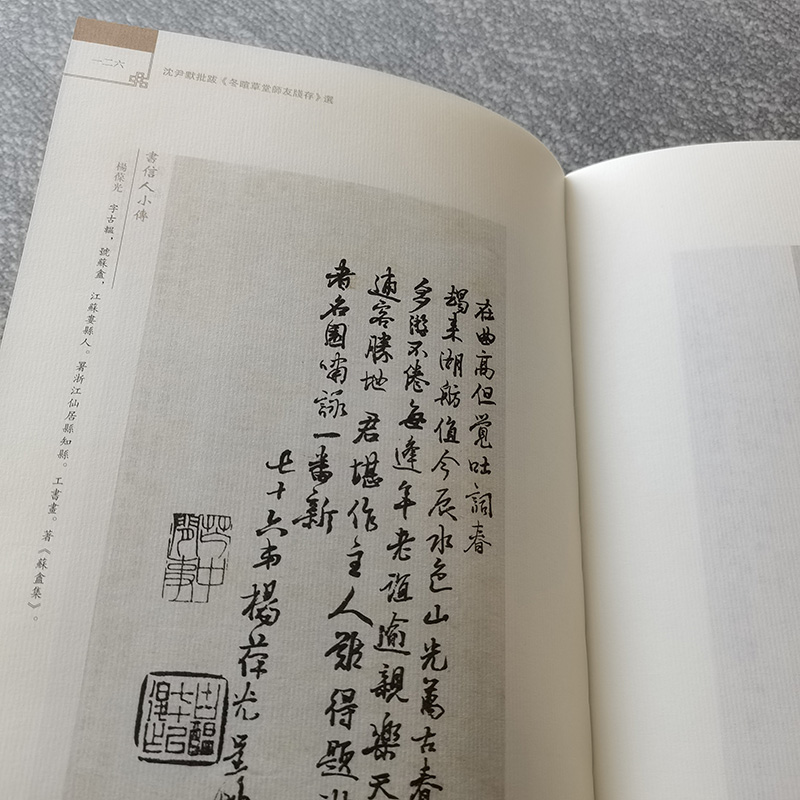 一二六
沈尹默批跋《冬暄草堂師友牋存》選
在曲高但覺吐詞春
朅来湖舫值今辰水色山光萬古春
游不倦每逢年老誼逾親樂天
逋客勝地君堪作主人難得題
者名園嘯詠一番新
七十六弟楊葆光呈
書信人小傳
楊葆光 字古醖，號蘇盦，江蘇婁縣人。署浙江仙居縣知縣。工書畫。著《蘇盦集》。